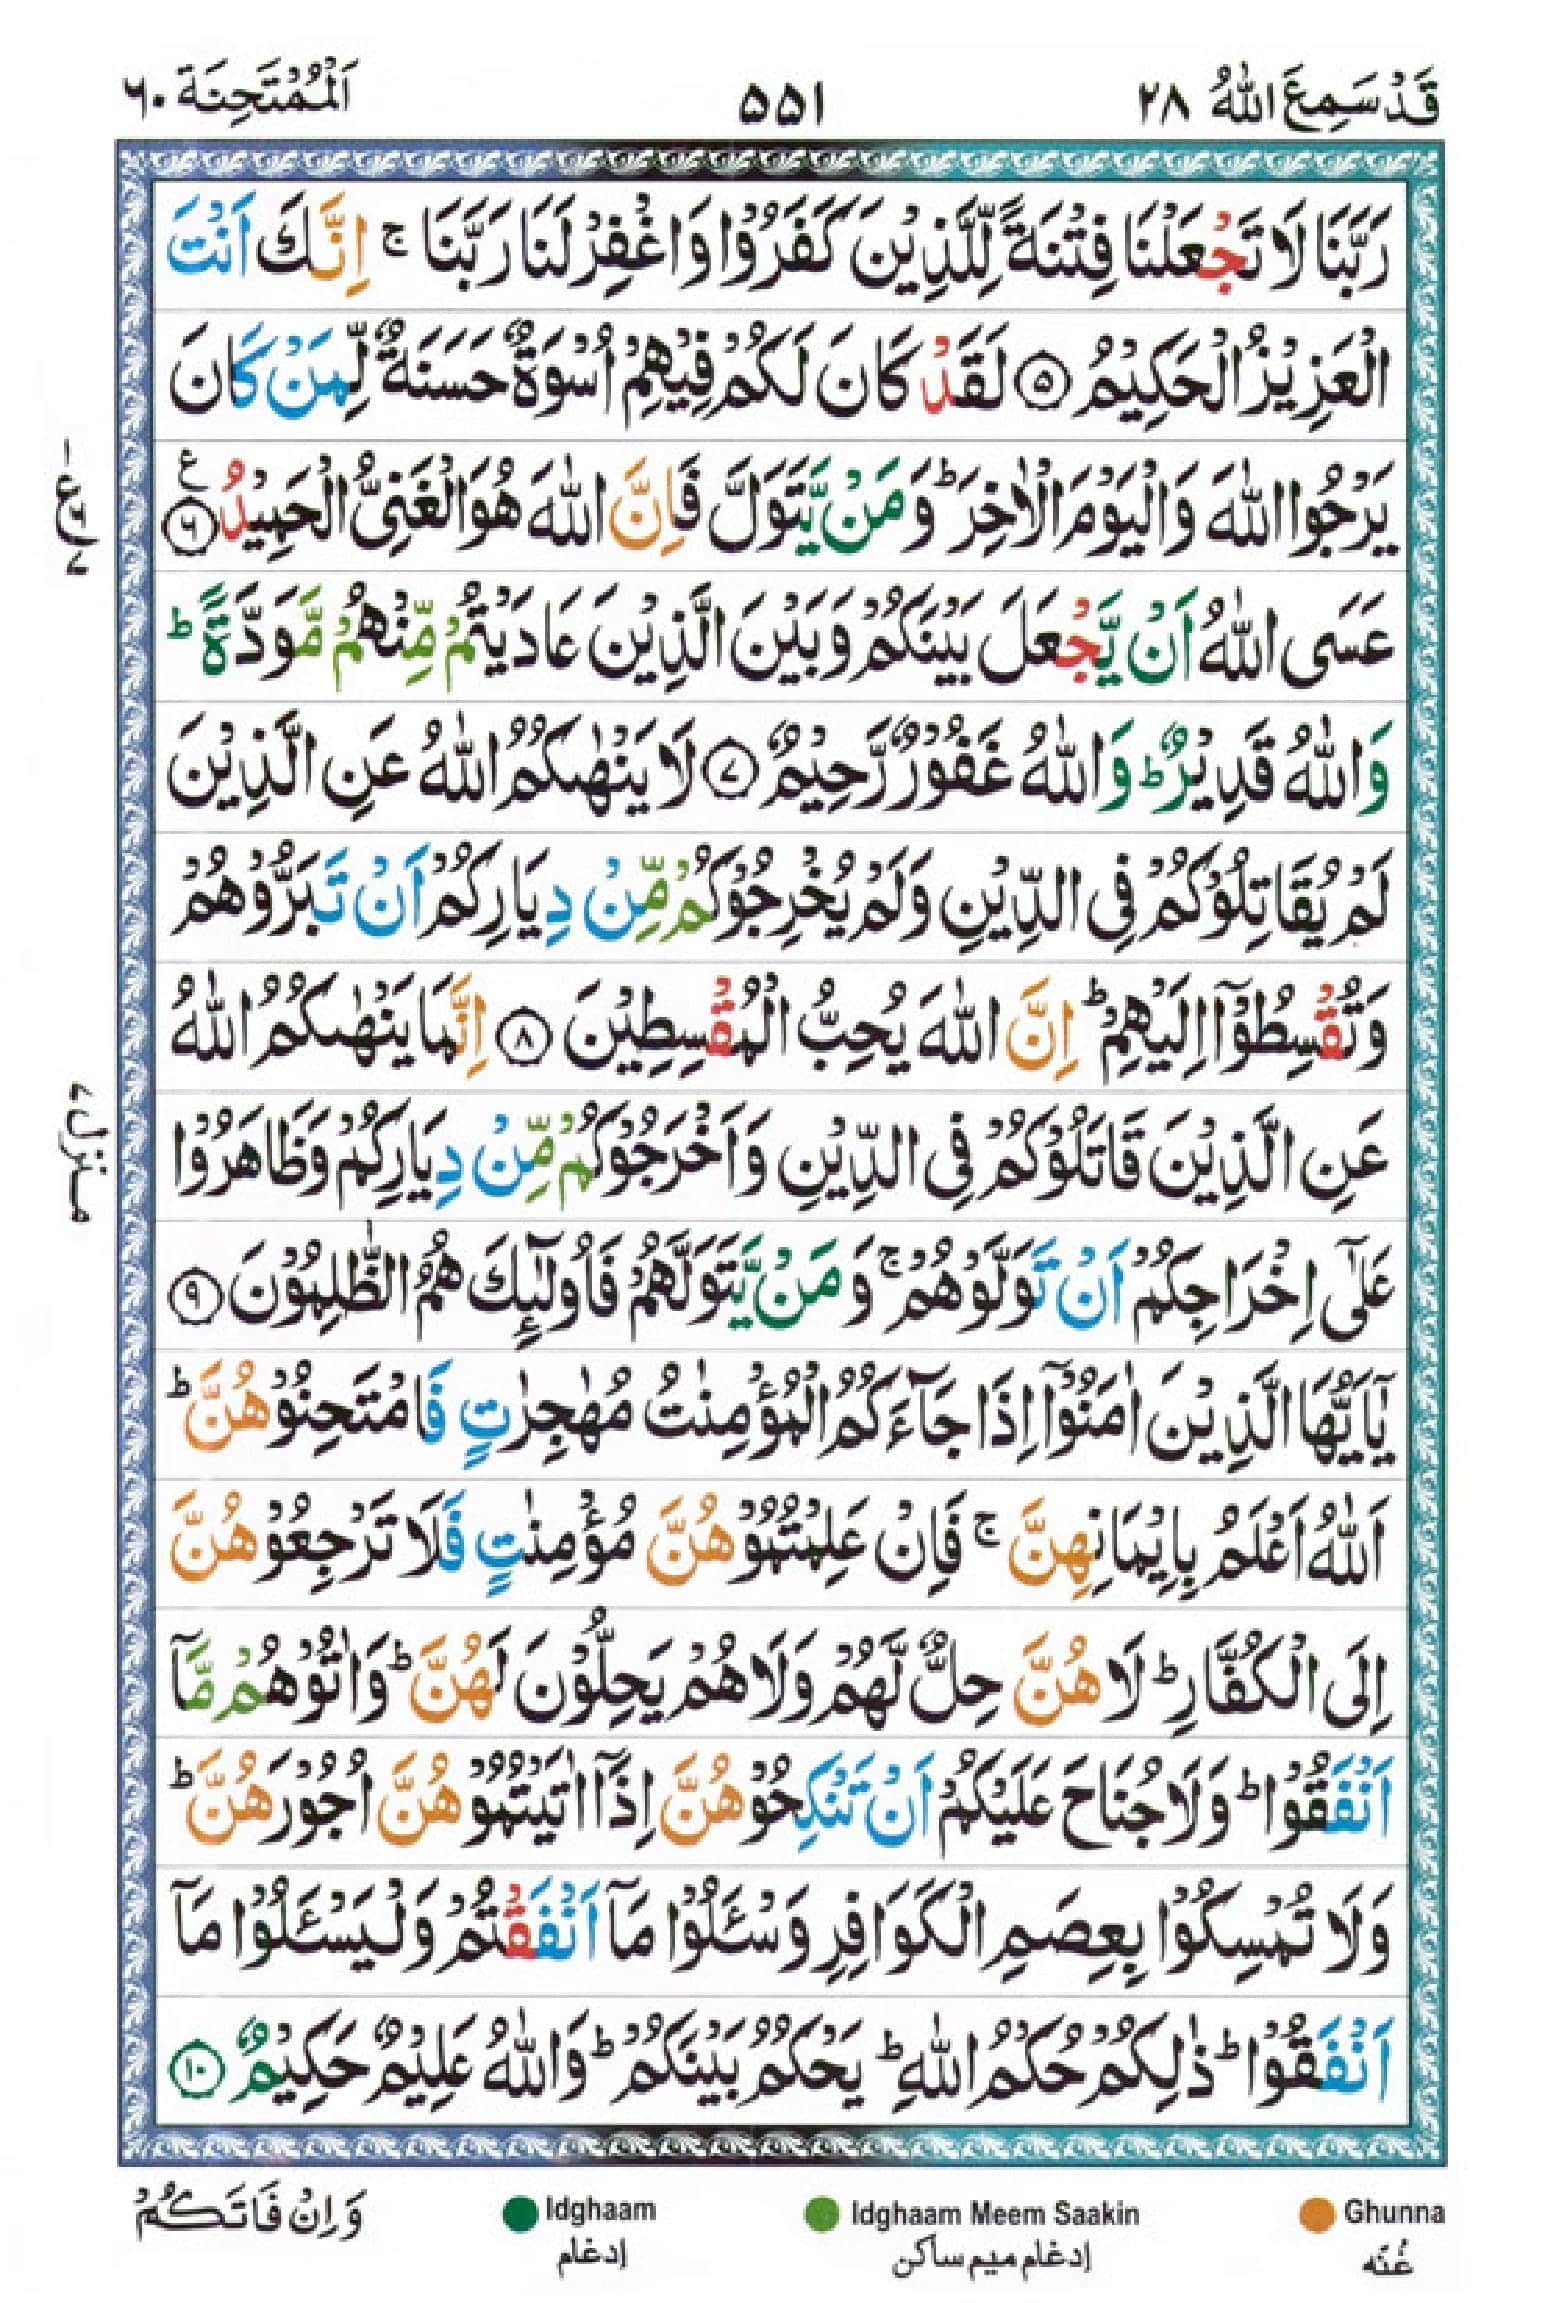 قَدْ سَمِعَ اللّٰهُ ٢٨
٥٥١
اَلْمُمْتَحِنَة ٦٠
رَبَّنَا لَا تَجْعَلْنَا فِتْنَةً لِّلَّذِيْنَ كَفَرُوْا وَاغْفِرْ لَنَا رَبَّنَا ۚ اِنَّكَ اَنْتَ
الْعَزِيْزُ الْحَكِيْمُ ۝٥ لَقَدْ كَانَ لَكُمْ فِيْهِمْ اُسْوَةٌ حَسَنَةٌ لِّمَنْ كَانَ
يَرْجُوا اللّٰهَ وَالْيَوْمَ الْاٰخِرَ ؕ وَمَنْ يَّتَوَلَّ فَاِنَّ اللّٰهَ هُوَ الْغَنِىُّ الْحَمِيْدُ ۝٦ ع
عَسَى اللّٰهُ اَنْ يَّجْعَلَ بَيْنَكُمْ وَبَيْنَ الَّذِيْنَ عَادَيْتُمْ مِّنْهُمْ مَّوَدَّةً ؕ
وَاللّٰهُ قَدِيْرٌ ؕ وَاللّٰهُ غَفُوْرٌ رَّحِيْمٌ ۝٧ لَا يَنْهٰىكُمُ اللّٰهُ عَنِ الَّذِيْنَ
لَمْ يُقَاتِلُوْكُمْ فِى الدِّيْنِ وَلَمْ يُخْرِجُوْكُمْ مِّنْ دِيَارِكُمْ اَنْ تَبَرُّوْهُمْ
وَتُقْسِطُوْۤا اِلَيْهِمْ ؕ اِنَّ اللّٰهَ يُحِبُّ الْمُقْسِطِيْنَ ۝٨ اِنَّمَا يَنْهٰىكُمُ اللّٰهُ
عَنِ الَّذِيْنَ قَاتَلُوْكُمْ فِى الدِّيْنِ وَاَخْرَجُوْكُمْ مِّنْ دِيَارِكُمْ وَظَاهَرُوْا
عَلٰٓى اِخْرَاجِكُمْ اَنْ تَوَلَّوْهُمْ ۚ وَمَنْ يَّتَوَلَّهُمْ فَاُولٰٓئِكَ هُمُ الظّٰلِمُوْنَ ۝٩
يٰۤاَيُّهَا الَّذِيْنَ اٰمَنُوْۤا اِذَا جَآءَكُمُ الْمُؤْمِنٰتُ مُهٰجِرٰتٍ فَامْتَحِنُوْهُنَّ ؕ
اَللّٰهُ اَعْلَمُ بِاِيْمَانِهِنَّ ۚ فَاِنْ عَلِمْتُمُوْهُنَّ مُؤْمِنٰتٍ فَلَا تَرْجِعُوْهُنَّ
اِلَى الْكُفَّارِ ؕ لَا هُنَّ حِلٌّ لَّهُمْ وَلَا هُمْ يَحِلُّوْنَ لَهُنَّ ؕ وَاٰتُوْهُمْ مَّاۤ
اَنْفَقُوْا ؕ وَلَا جُنَاحَ عَلَيْكُمْ اَنْ تَنْكِحُوْهُنَّ اِذَاۤ اٰتَيْتُمُوْهُنَّ اُجُوْرَهُنَّ ؕ
وَلَا تُمْسِكُوْا بِعِصَمِ الْكَوَافِرِ وَسْئَلُوْا مَاۤ اَنْفَقْتُمْ وَلْيَسْئَلُوْا مَاۤ
اَنْفَقُوْا ؕ ذٰلِكُمْ حُكْمُ اللّٰهِ ؕ يَحْكُمُ بَيْنَكُمْ ؕ وَاللّٰهُ عَلِيْمٌ حَكِيْمٌ ۝١٠
منزل ٧
وَاِنْ فَاتَكُمْ
Idghaam
إدغام
Idghaam Meem Saakin
إدغام ميم ساكن
Ghunna
غُنّه